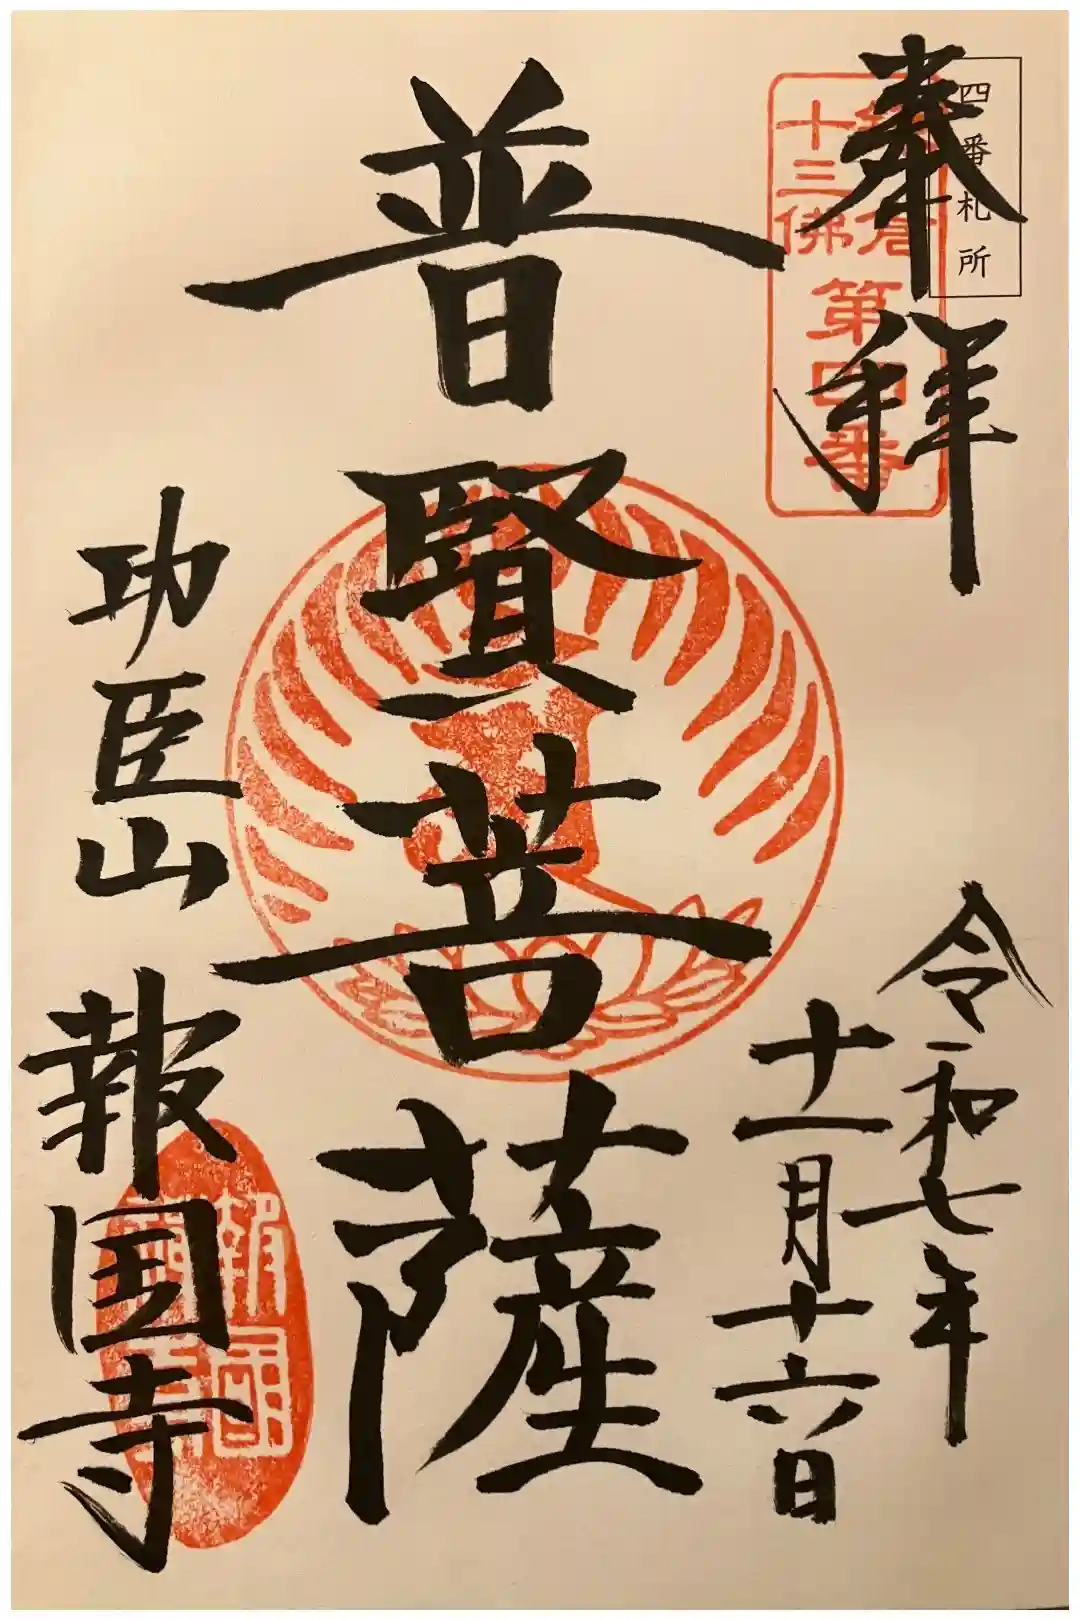 奉拝
四番札所
鎌倉
十三佛
第四番
令和七年
十一月十六日
普賢菩薩
功臣山
報国寺
報国